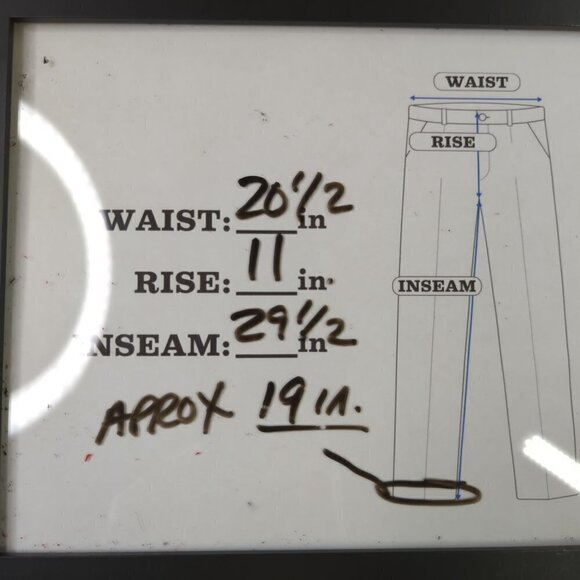 WAIST
RISE
WAIST: 20 1/2 in
RISE: 11 in.
INSEAM
NSEAM: 29 1/2 in
APROX 19 in.